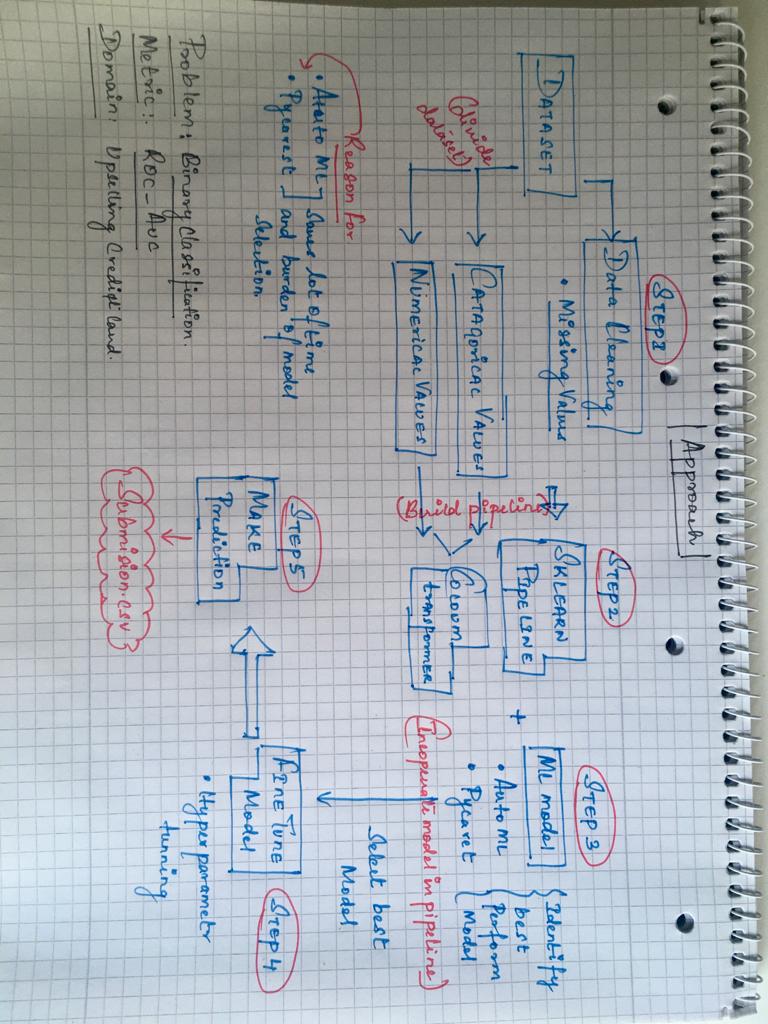 Approach
STEP 1
DATASET
Data Cleaning
• Missing Values
(divide
dataset)
CATAGORICAL VALUES
NUMERICAL VALUES
STEP 2
SKLEARN
PIPELINE
(Build pipeline)
COLOUM
transformer
+
STEP 3
ML model
• Auto ML
• Pycaret
Identify
best
Perform
Model
(Incoperate model in pipeline)
Select best
Model
STEP 4
FINE TUNE
Model
• Hyper parametr
tunning
STEP 5
MAKE
Prediction
Submision.csv
Reason for
• Auto ML
• Pycarest
Saves lot of time
and burden of model
Selection
Problem: Binary classification.
Metric:. ROC_AUC
Domain: Upselling Credit Card.